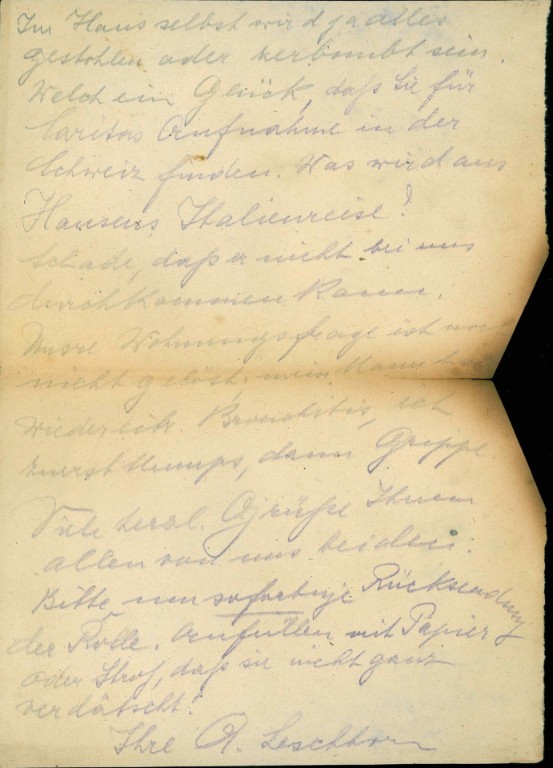 Im Haus selbst wird ja alles
gestohlen oder zerbombt sein.
Welch ein Glück, daß Sie für
Caritas Aufnahme in der
Schweiz finden. Was wird aus
Hansens Italienreise?
Schade, daß er nicht bei uns
durchkommen kann.
Unsre Wohnungsfrage ist noch
nicht gelöst, mein Mann
wieder Bronchitis, ich
zuerst Mumps, dann Grippe.
Viele herzl. Grüße Ihnen
allen von uns beiden.
Bitte um sofortige Rücksendung
der Rolle. Anfüllen mit Papier
oder Stroh, daß sie nicht ganz
verdätscht!
Ihre A.